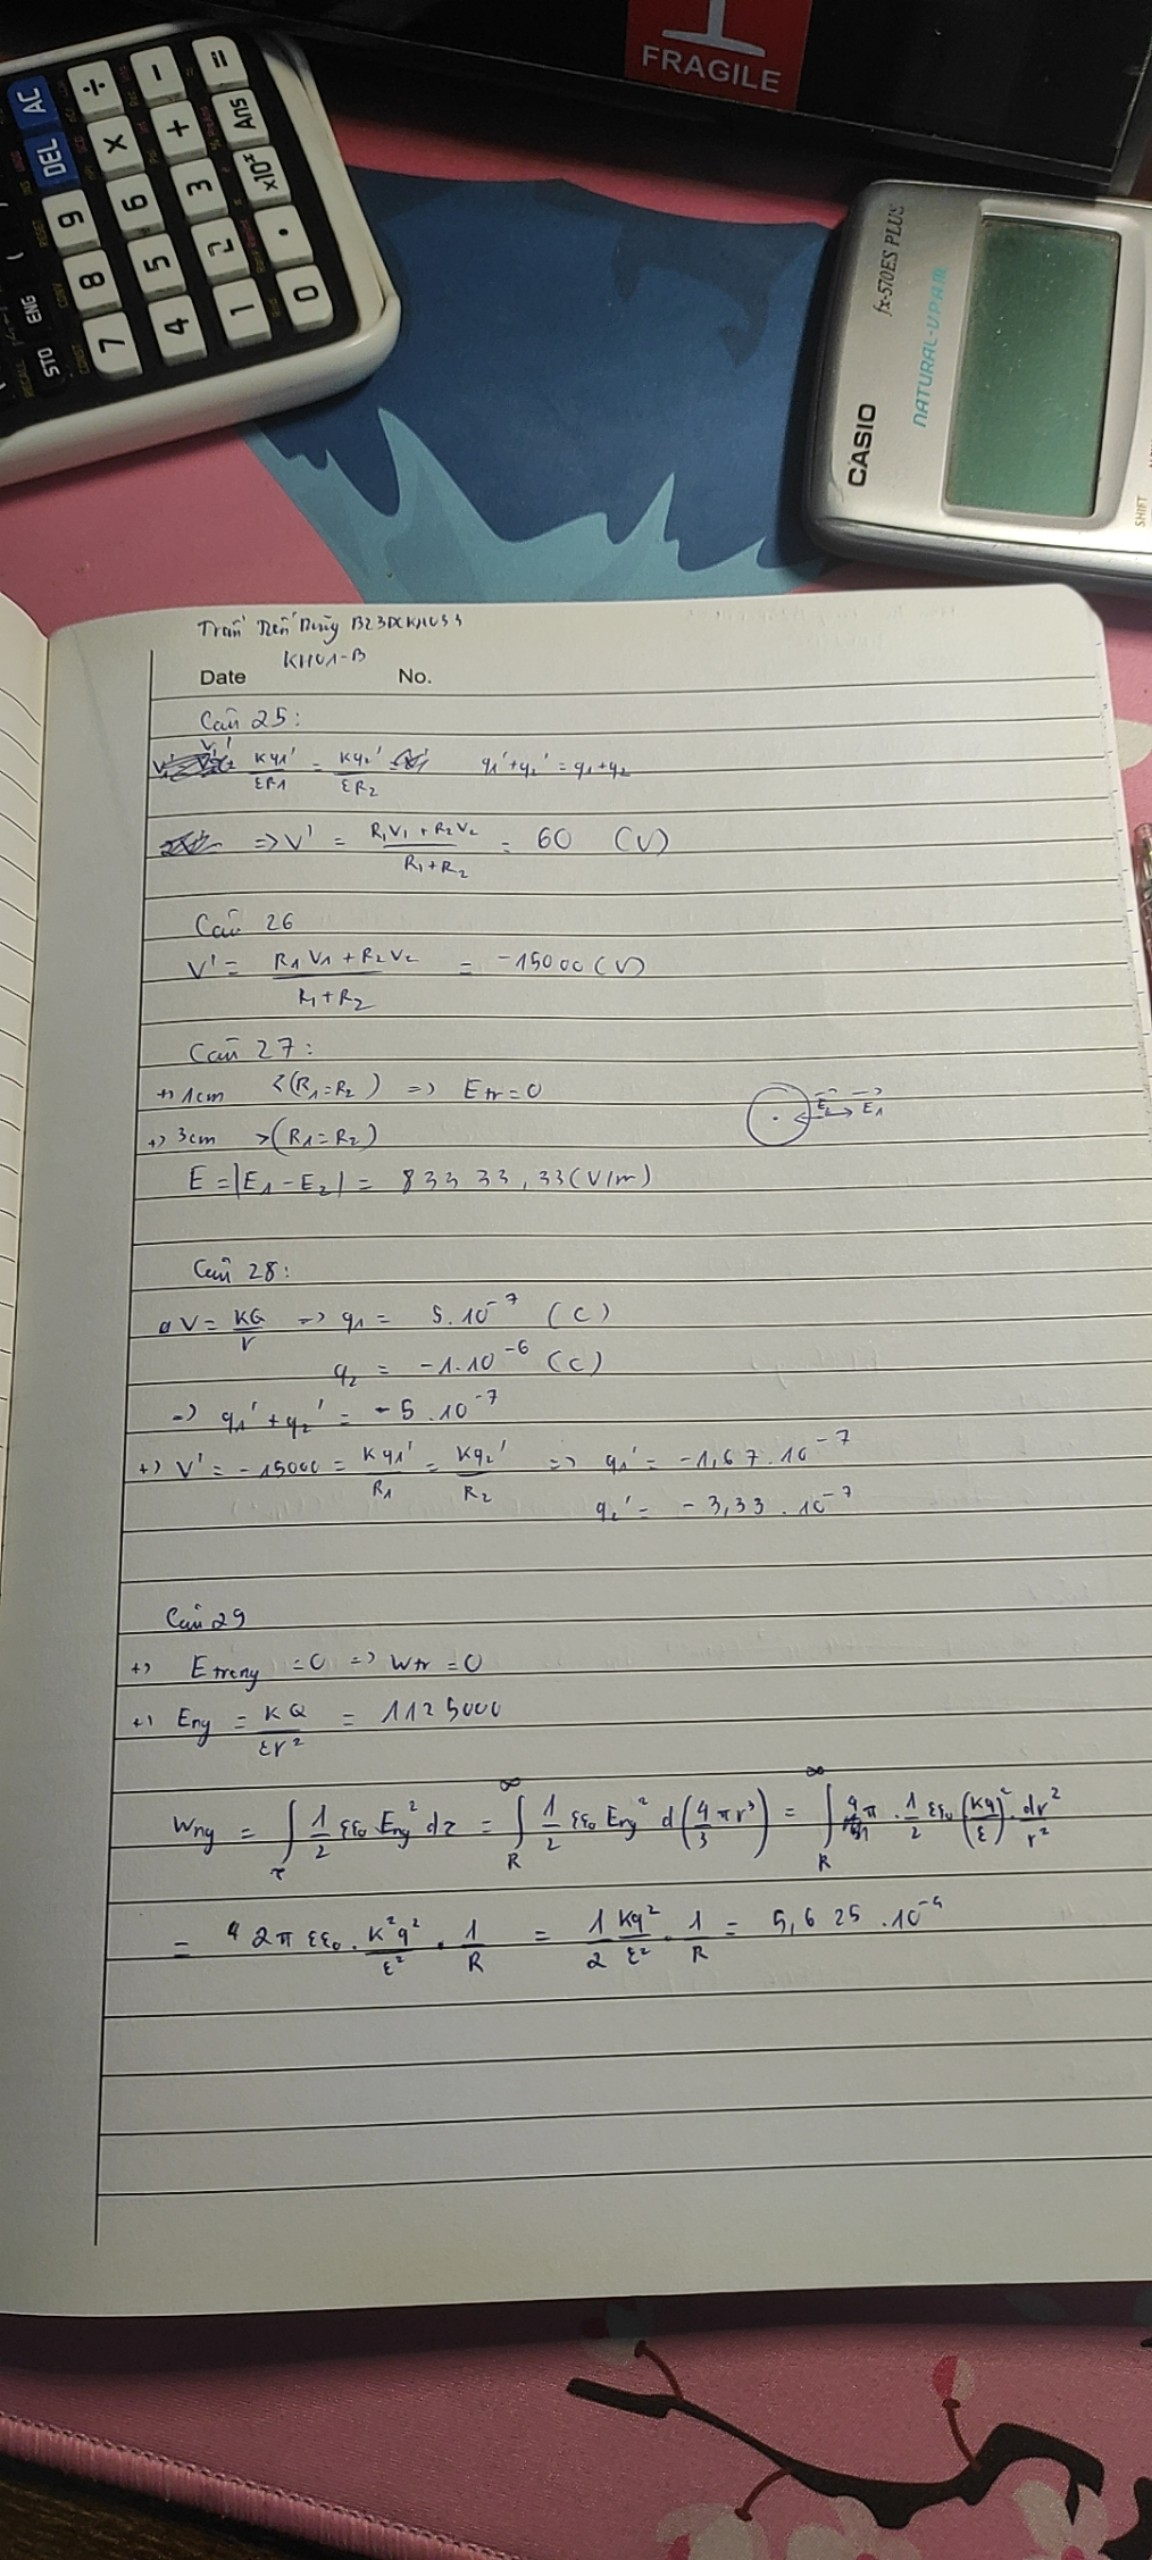 FRAGILE
AC
÷
-
=
DEL
X
+
Ans
9
6
3
×10ˣ
8
5
2
.
7
4
1
0
ENG
STO
(
CASIO
fx-570ES PLUS
NATURAL-V.P.A.M.
SHIFT
KH01-B
Date
No.
Câu 25:
V' = Kq1'/εR1 = Kq2'/εR2 q1'+q2' = q1+q2
=> V' = (R1V1 + R2V2)/(R1+R2) = 60 (V)
Câu 26
V' = (R1V1 + R2V2)/(R1+R2) = -15000 (V)
Câu 27:
+) 1cm <(R1=R2) => Etr=0
+) 3cm >(R1=R2)
E2 E1
E = |E1 - E2| = 83333,33 (V/m)
Câu 28:
V = KQ/r => q1 = 5.10⁻⁷ (C)
q2 = -1.10⁻⁶ (C)
=> q1' + q2' = -5.10⁻⁷
+) V' = -15000 = Kq1'/R1 = Kq2'/R2 => q1' = -1,67.10⁻⁷
q2' = -3,33.10⁻⁷
Câu 29
+) Etrong = 0 => Wtr = 0
+) Eng = KQ/εr² = 1125000
Wng = ∫τ 1/2 εε0 Eng² dτ = ∫R∞ 1/2 εε0 Eng² d(4/3 πr³) = ∫R∞ 4π . 1/2 εε0 (Kq/ε)² . dr²/r²
= 2π εε0 . K²q²/ε² . 1/R = 1/2 Kq²/ε² . 1/R = 5,625.10⁻⁴